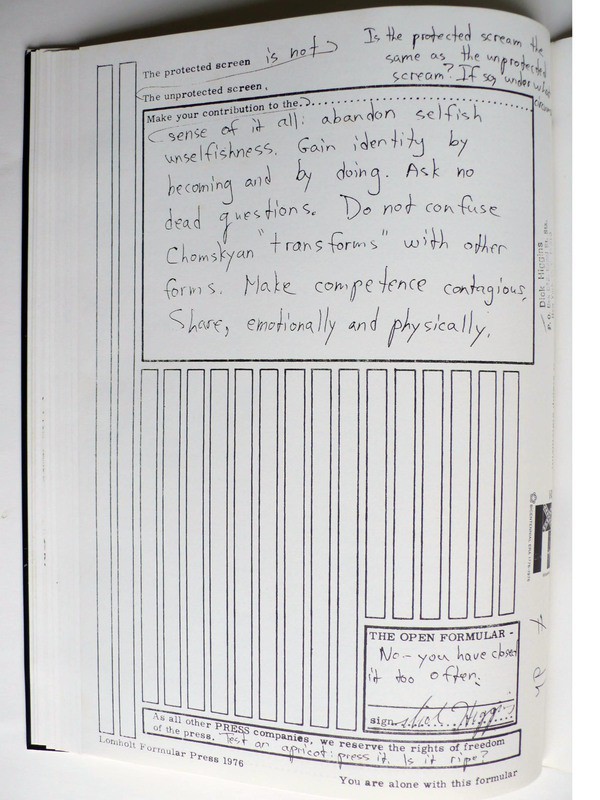 The protected screen is not
The unprotected screen,
Is the protected scream the
same as the unprotected
scream? If so, under what
Make your contribution to the..............................
sense of it all: abandon selfish
unselfishness. Gain identity by
becoming and by doing. Ask no
dead questions. Do not confuse
Chomskyan "transforms" with other
forms. Make competence contagious.
Share, emotionally and physically.
Dick Higgins
BICENTENNIAL ERA 1776-1976
THE OPEN FORMULAR -
No - you have closed
it too often.
sign. Dick Higgins
As all other PRESS companies, we reserve the rights of freedom
of the press. Test an apricot: press it. Is it ripe?
Lomholt Formular Press 1976
You are alone with this formular